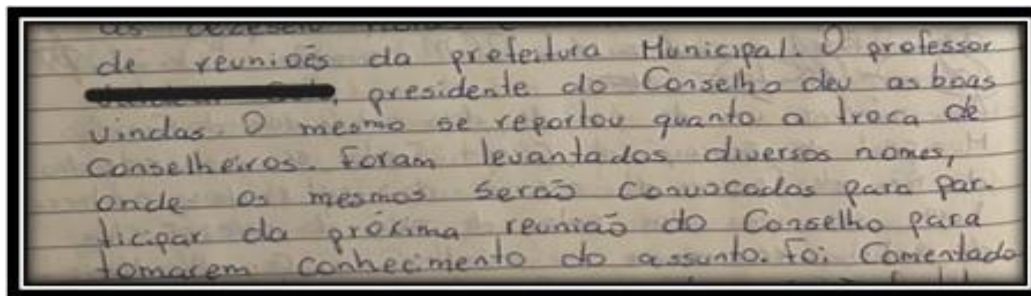 as dezesseis
de reuniões da prefeitura Municipal. O professor
, presidente do Conselho deu as boas
vindas O mesmo se reportou quanto a troca de
Conselheiros. Foram levantados diversos nomes,
onde os mesmos serão Convocados para par-
ticipar da próxima reunião do Conselho para
tomarem conhecimento do assunto. Foi Comentado